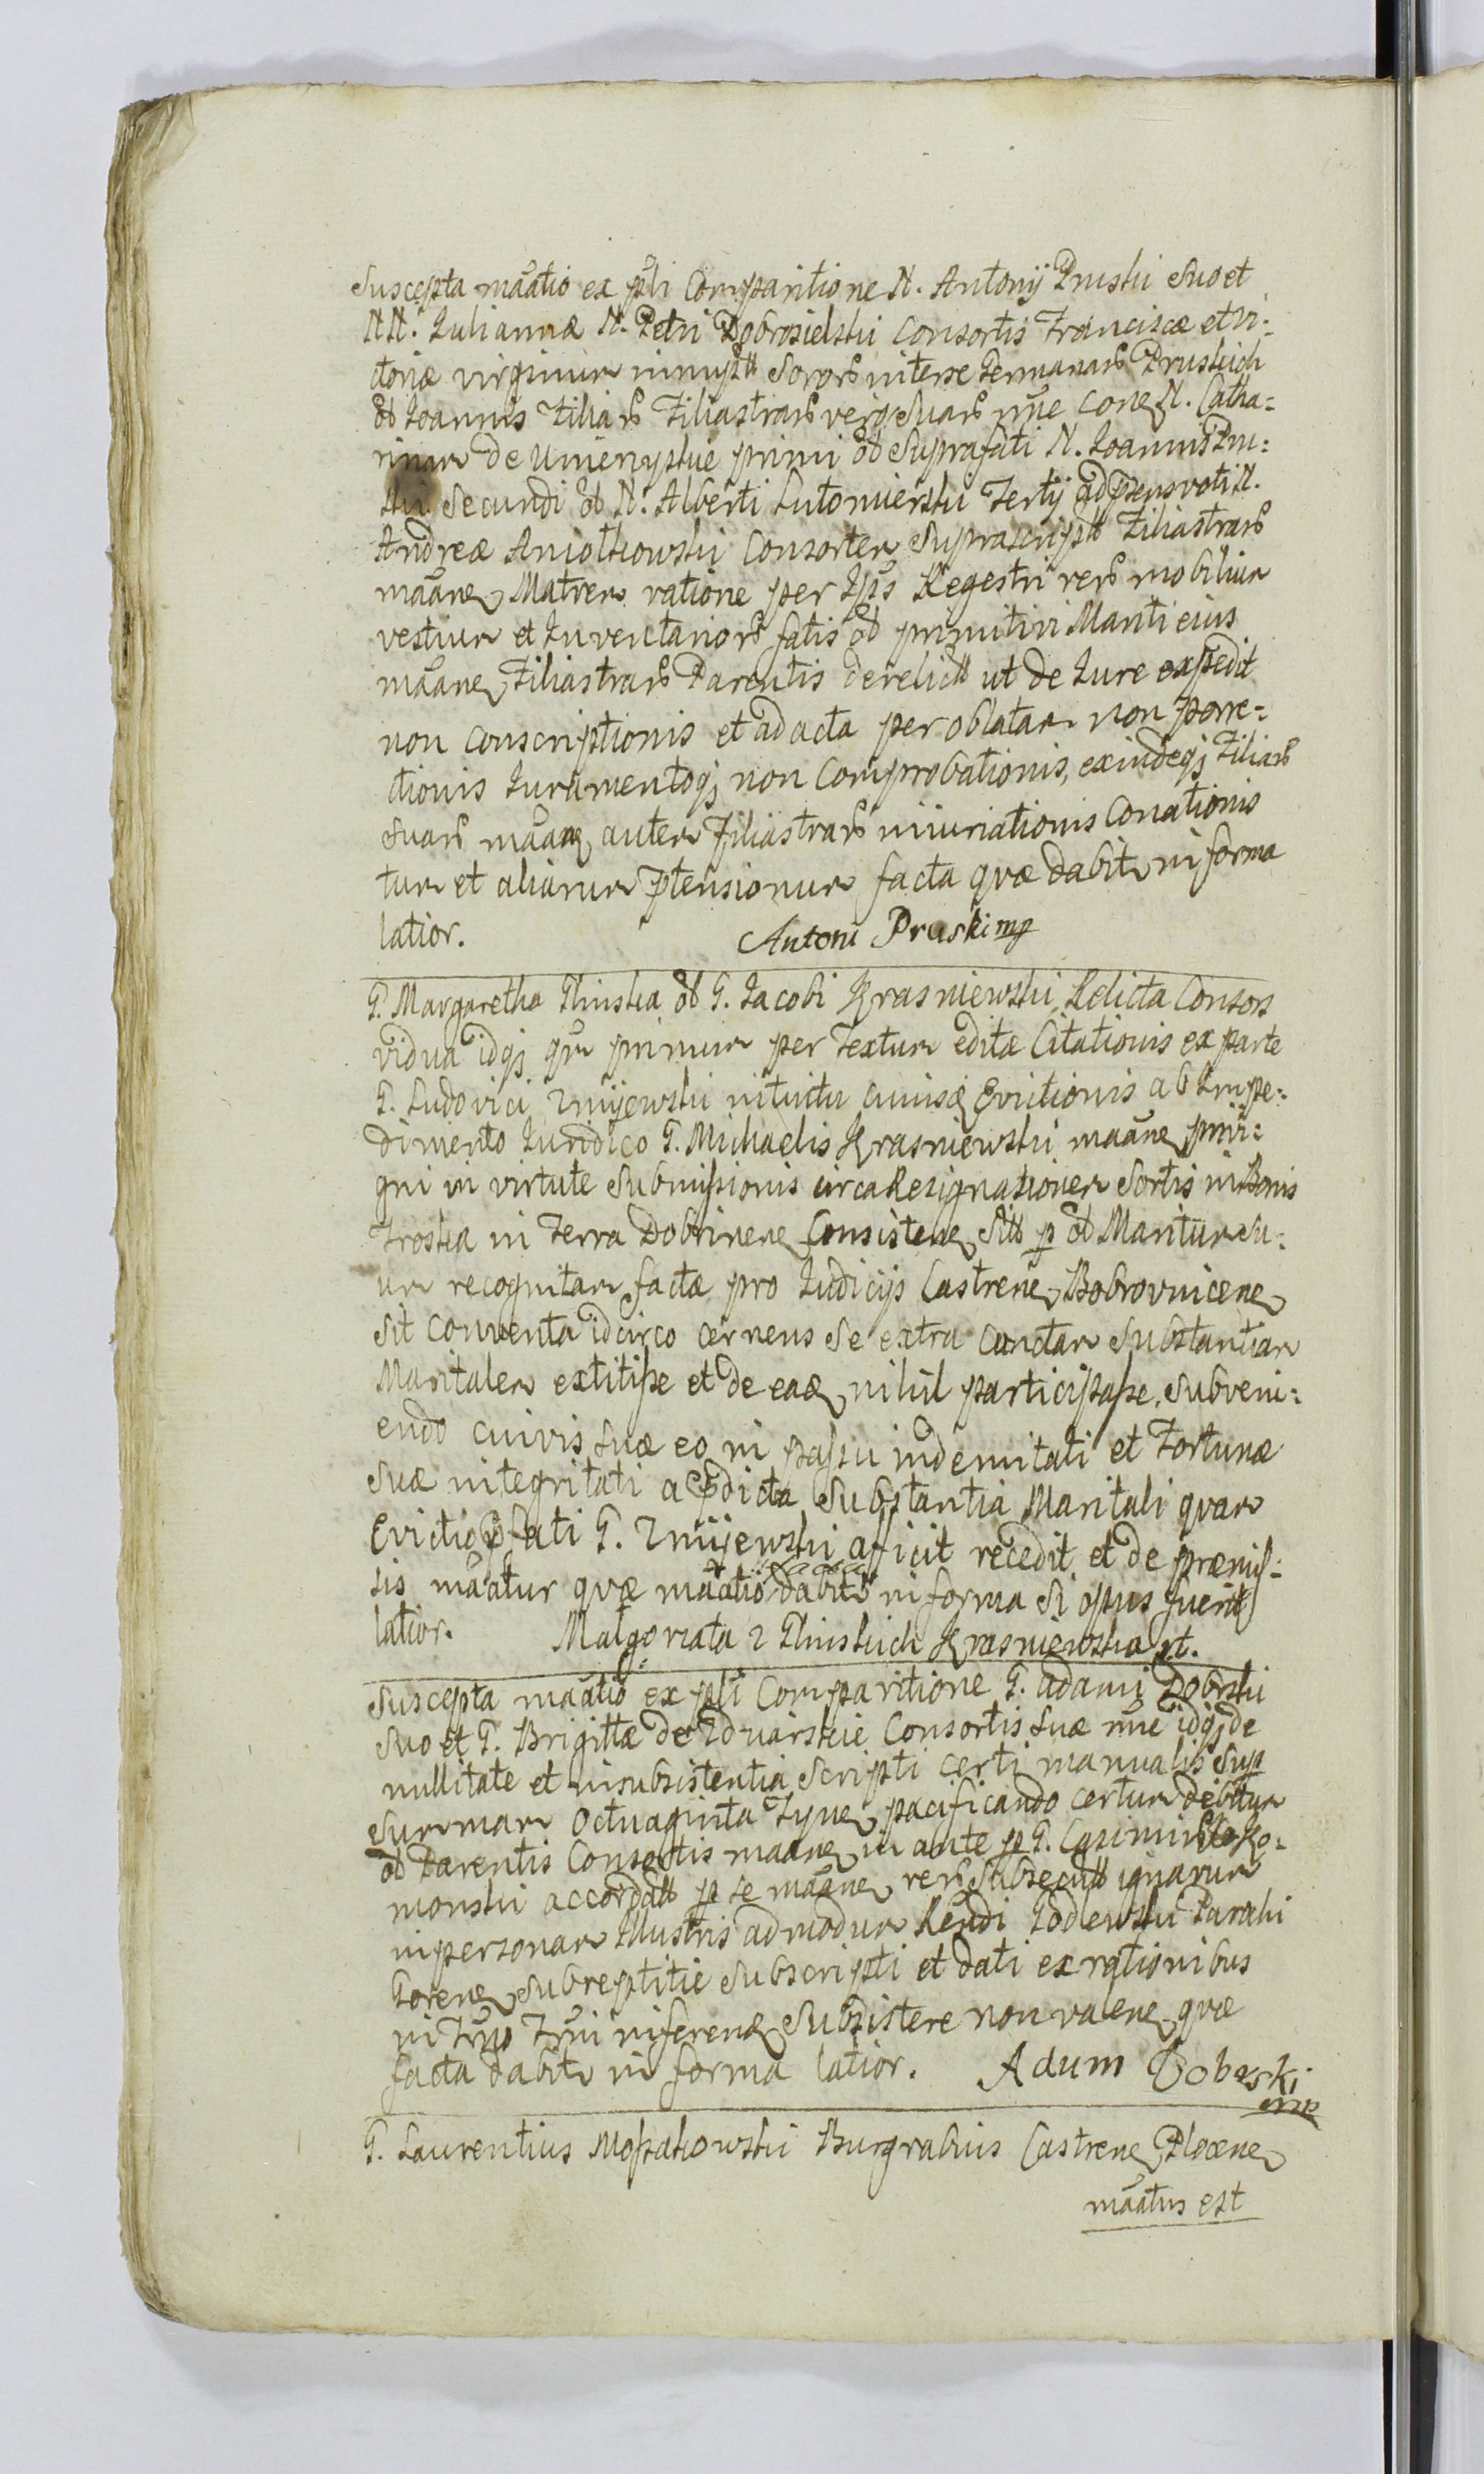 Suscepta māatio ex płi Comparitione N. Antonij Pruski Suo et
NN. Juliannæ N. Petri Dobrosielski Consortis Franciscæ et Vi=
ctoriæ virginum innupt Soror interse Germanar Pruskich
ol Joannis Filiar Filiastrar vero Suar nñe cone N. Catha=
rinam de Umienyskie primi ol Suprafati N. Joannis Pru=
ski Secundi ol N. Alberti Lutomierski Tertij ad præns voti N.
Andreæ Aniolkowski Consortem Suprascript Filiastrar
māane Matrem ratione per Ips Regestri rer mobilium
vestium et Inventarior fatis ol primitivi Mariti eius
māane Filiastrar Parentis derelict ut de Jure expedit
non conscriptionis et ad acta per oblatam non porre=
ctionis Juramentoq; non Comprobationis, exindeq; Filiar
Suar māane autem Filiastrar iniuriationis Conationis
tum et aliarum ptensionum facta quæ dabit in forma
latior. Antoni Pruski mp
G. Margaretha Glinska ol G. Jacobi Krasniewski Relicta Consors
vidua idq; qm primum per Textum editæ Citationis ex parte
G. Ludovici Zmijewski intuitu cuiusq Evictionis ab Impe=
dimento Juridico G. Michaelis Krasniewski māane privi=
gni in virtute Submissionis circa Resignationem Sortis in Bonis
Troska in Terra Dobrinene Consistene Sit p ol Maritum Su=
um recognitam factæ pro Judicijs Castrene Bobrovnicene
Sit Conventa idcirco cernens Se extra cunctam Substantiam
Maritalem extitisse et de eaq nihil participasse. Subveni=
endo cuivis Suæ eo in passu indemnitati et Fortunæ
Suæ integritati a pdicta Substantia Maritali quam
Evictio pfati G. Zmijewski afficit recedit et de præmis=
sis māatur quæ māatio dabit in forma si opus fuerit
latior. Małgorzata z Glinskich Krasniewska xt.
Suscepta māatio ex pli Comparitione G. Adami Dobrski
Suo et G. Brigittæ de Zduńskie Consortis Suæ nñe idq; de
nullitate et insubsistentia Scripti certi manualis Sup
Summam Octuaginta Tyne, pacificando certum debitum
ol Parentis Consortis māane in ante p G. Casimir
monski accordat p Se māane rer Subsecut ignarum
inpersonam Illustris admodum Rendi Godlewski Parochi
Gorene Subreptitie Subscripti et dati ex rationibus
in Trno Trni inferenq Subsistere non valene quæ
facta dabit in forma latior. Adam Dobrski
mp
G. Laurentius Mossakowski Burgrabius Castrene Plocene
māatus est